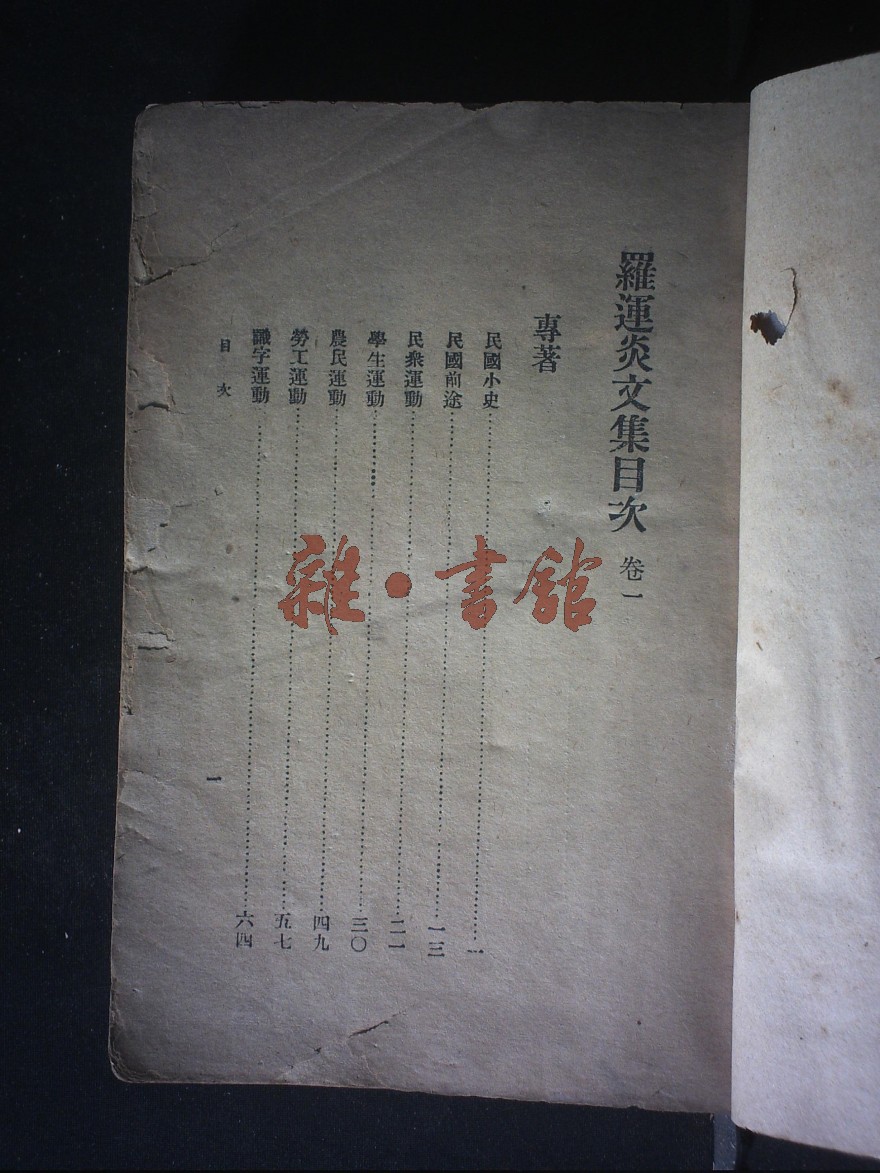 羅運炎文集目次 卷一
專著
民國小史……一
民國前途……一三
民衆運動……二一
學生運動……三〇
農民運動……四九
勞工運動……五七
識字運動……六四
目次
一
雜·書館